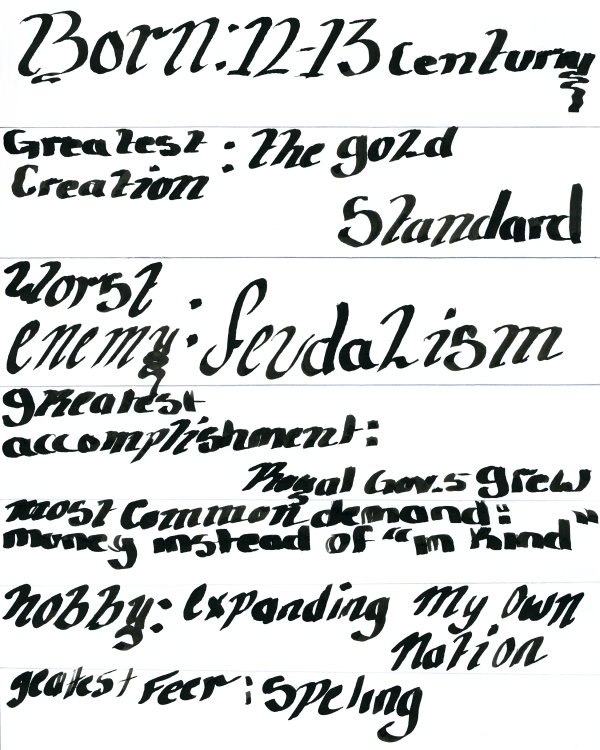 Born: 12-13 Century
Greatest : The gold
Creation
Standard
Worst
enemy : feudalism
greatest
accomplishment:
Royal Gov.s grew
most Common demand:
money instead of "in kind"
hobby: expanding my own
nation
geatest Feer : Speling